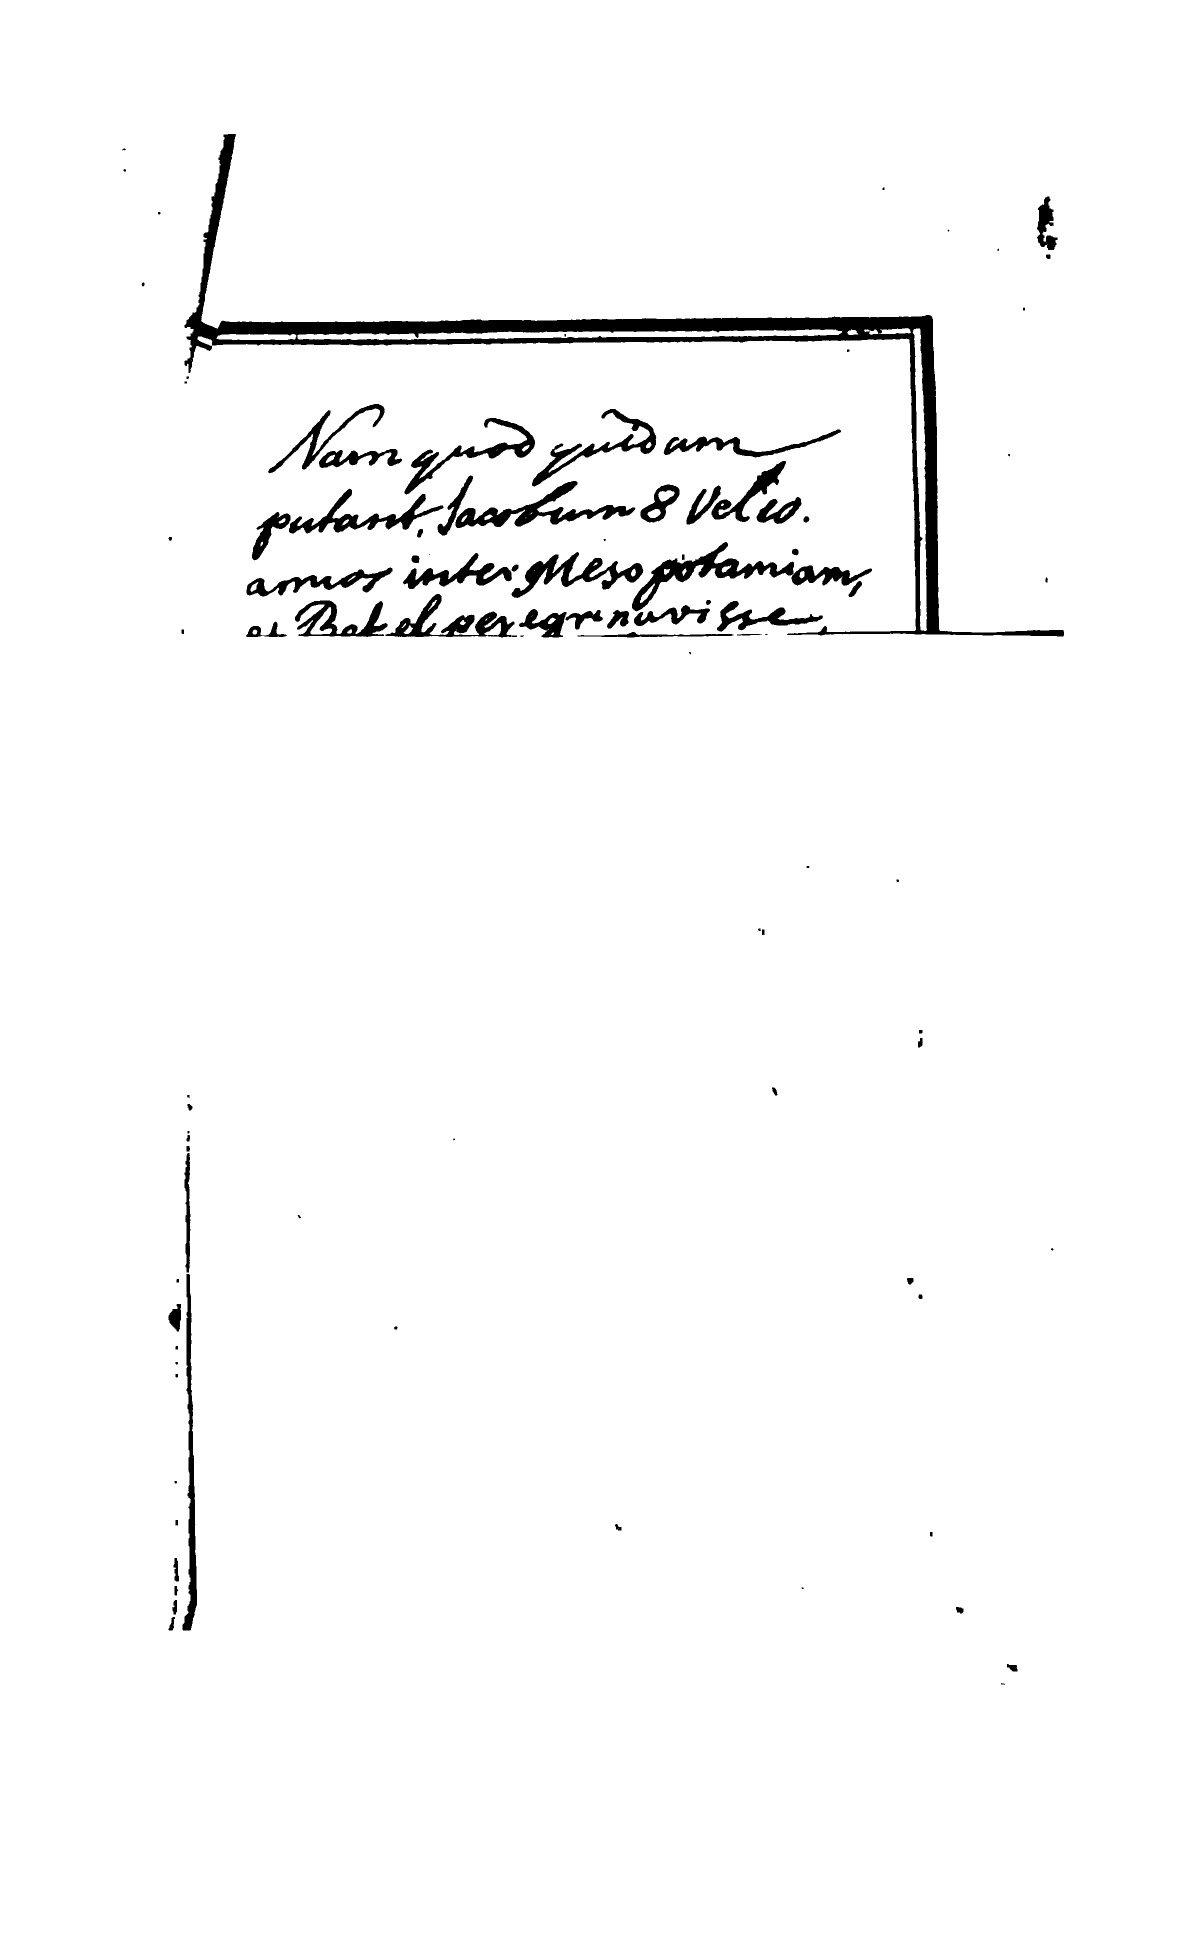 Nam quod quidam
putant, Jacobum 8 vel 10.
annos inter Mesopotamiam,
et Bethel peregrinavisse,